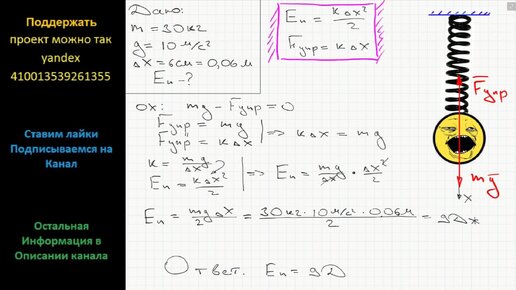 Поддержать
проект можно так
yandex
410013539261355
Ставим лайки
Подписываемся на
Канал
Остальная
Информация в
Описании канала
Дано:
m = 30 кг
g = 10 м/с²
Δx = 6см = 0,06 м
Eп - ?
Eп = kΔx²/2
Fупр = kΔx
ox: mg - Fупр = 0
Fупр = mg
Fупр = kΔx | => kΔx = mg
k = mg/Δx
Eп = kΔx²/2 | => Eп = mg/Δx · Δx²/2
Eп = mgΔx/2 = 30кг · 10 м/с² · 0.06м/2 = 9Дж
Ответ. Eп = 9Д
Fупр
mg
x